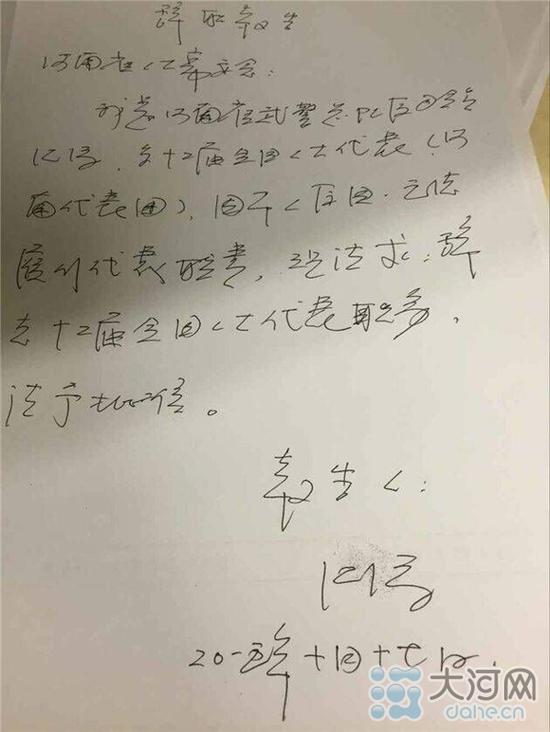 辞职报告
河南省人大常委会:
我是河南省武警总队原司令员
沈涛,系十二届全国人大代表(河
南代表团),因个人原因,无法
履行代表职责,现请求:辞
去十二届全国人大代表职务,
请予批准。
报告人:
沈涛
20一五年十月十七日.
大河网
dahe.cn